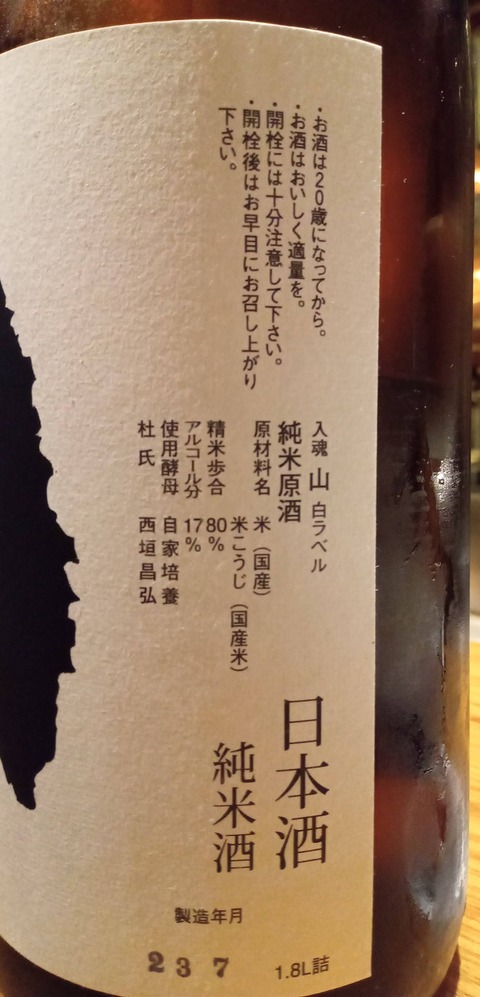 ・お酒は20歳になってから。
・お酒はおいしく適量を。
・開栓には十分注意して下さい。
・開栓後はお早目にお召し上がり
下さい。
入魂 山 白ラベル
純米原酒
原材料名 米（国産）
米こうじ（国産米）
精米歩合 80%
アルコール分 17%
使用酵母 自家培養
杜氏 西垣昌弘
日本酒
純米酒
製造年月
23 7
1.8L詰